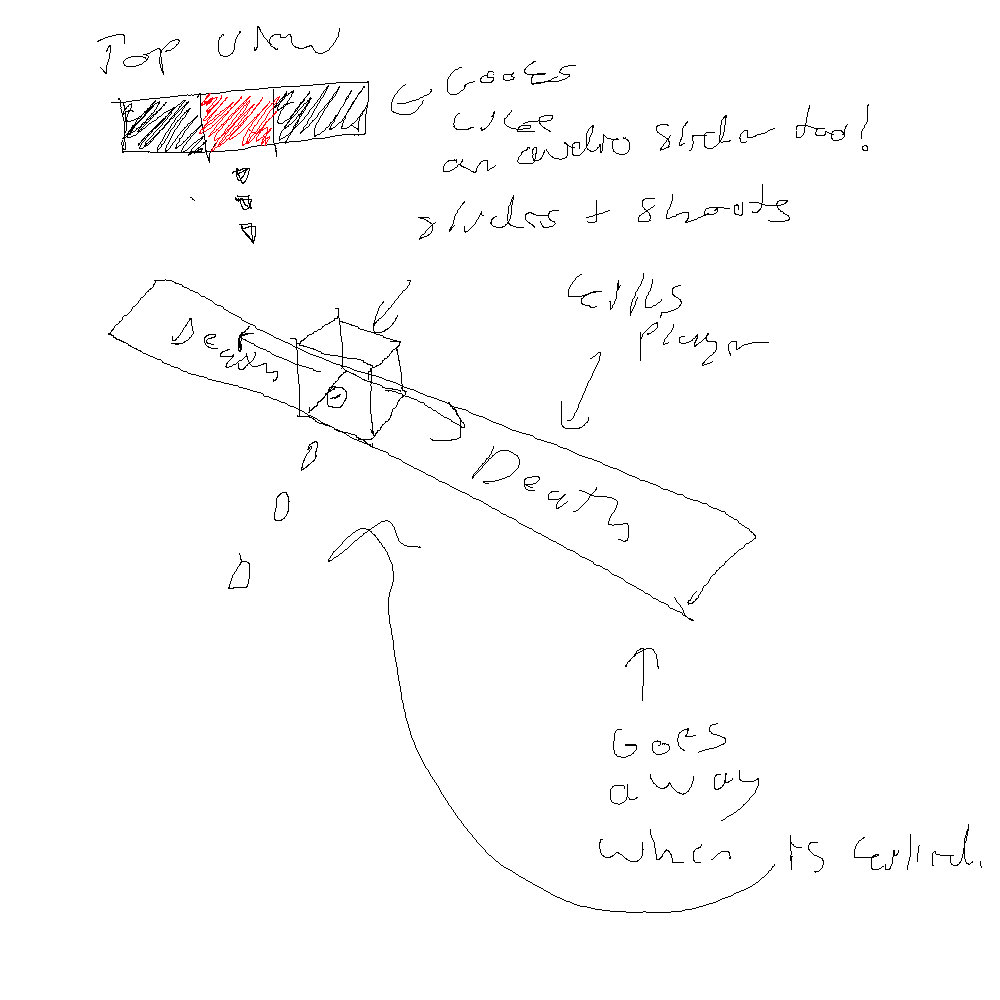 Top view
Looks
like
an audio slider too!
slides + shoots
kills
player
Death
Death
Goes
away
when its killed.